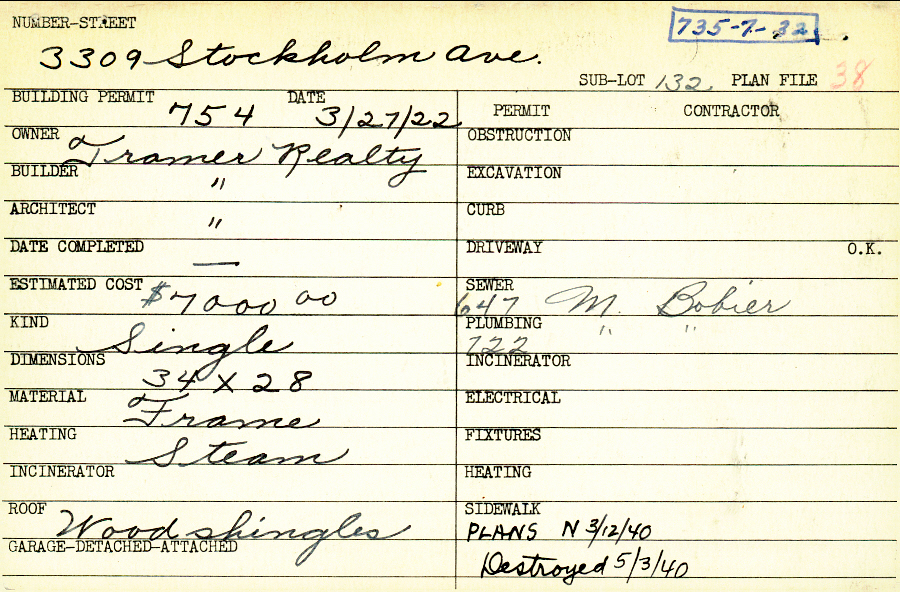 NUMBER-STREET
735-7-32
3309 Stockholm Ave.
SUB-LOT 132 PLAN FILE 38
BUILDING PERMIT 754 DATE 3/27/22
PERMIT CONTRACTOR
OWNER Tramer Realty
OBSTRUCTION
BUILDER "
EXCAVATION
ARCHITECT "
CURB
DATE COMPLETED —
DRIVEWAY O.K.
ESTIMATED COST $7000 00
SEWER 647 M. Bobier
KIND Single
PLUMBING 722 " "
DIMENSIONS 34 X 28
INCINERATOR
MATERIAL Frame
ELECTRICAL
HEATING Steam
FIXTURES
INCINERATOR
HEATING
ROOF Wood shingles
SIDEWALK
PLANS N 3/12/40
GARAGE-DETACHED-ATTACHED
Destroyed 5/3/40